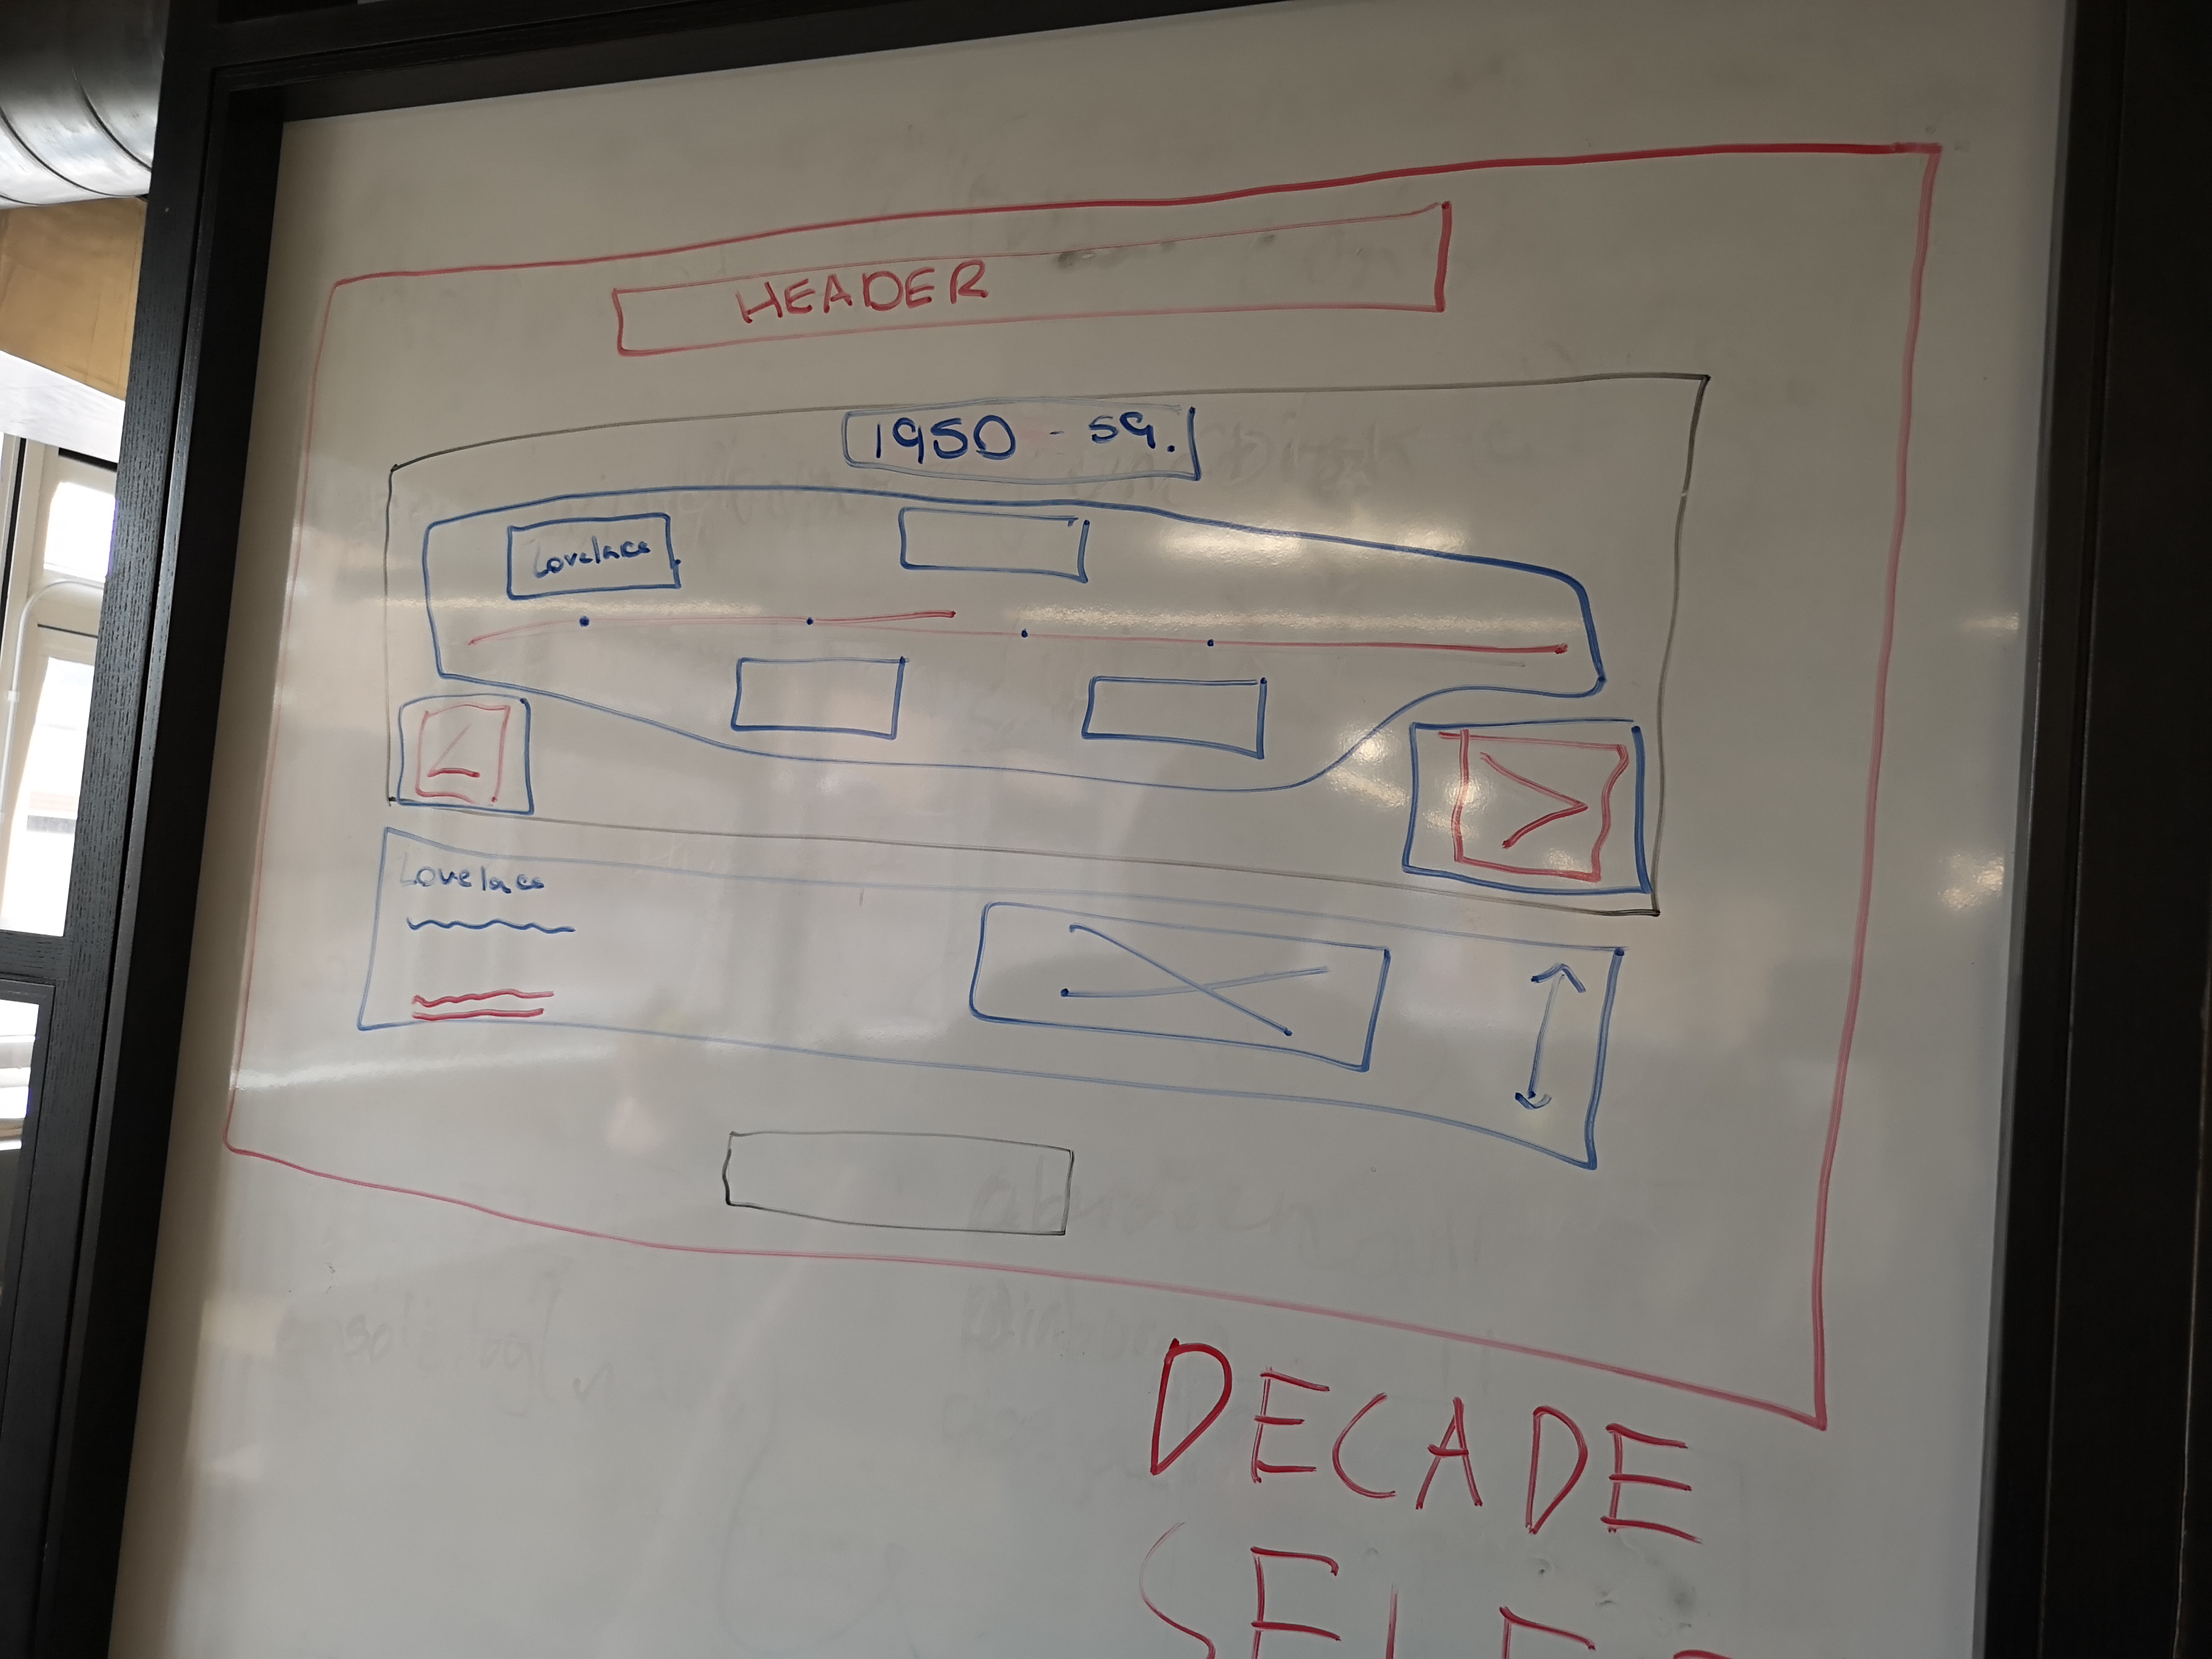 HEADER
1950 - 59.
Lovelace
<
>
Lovelace
DECADE